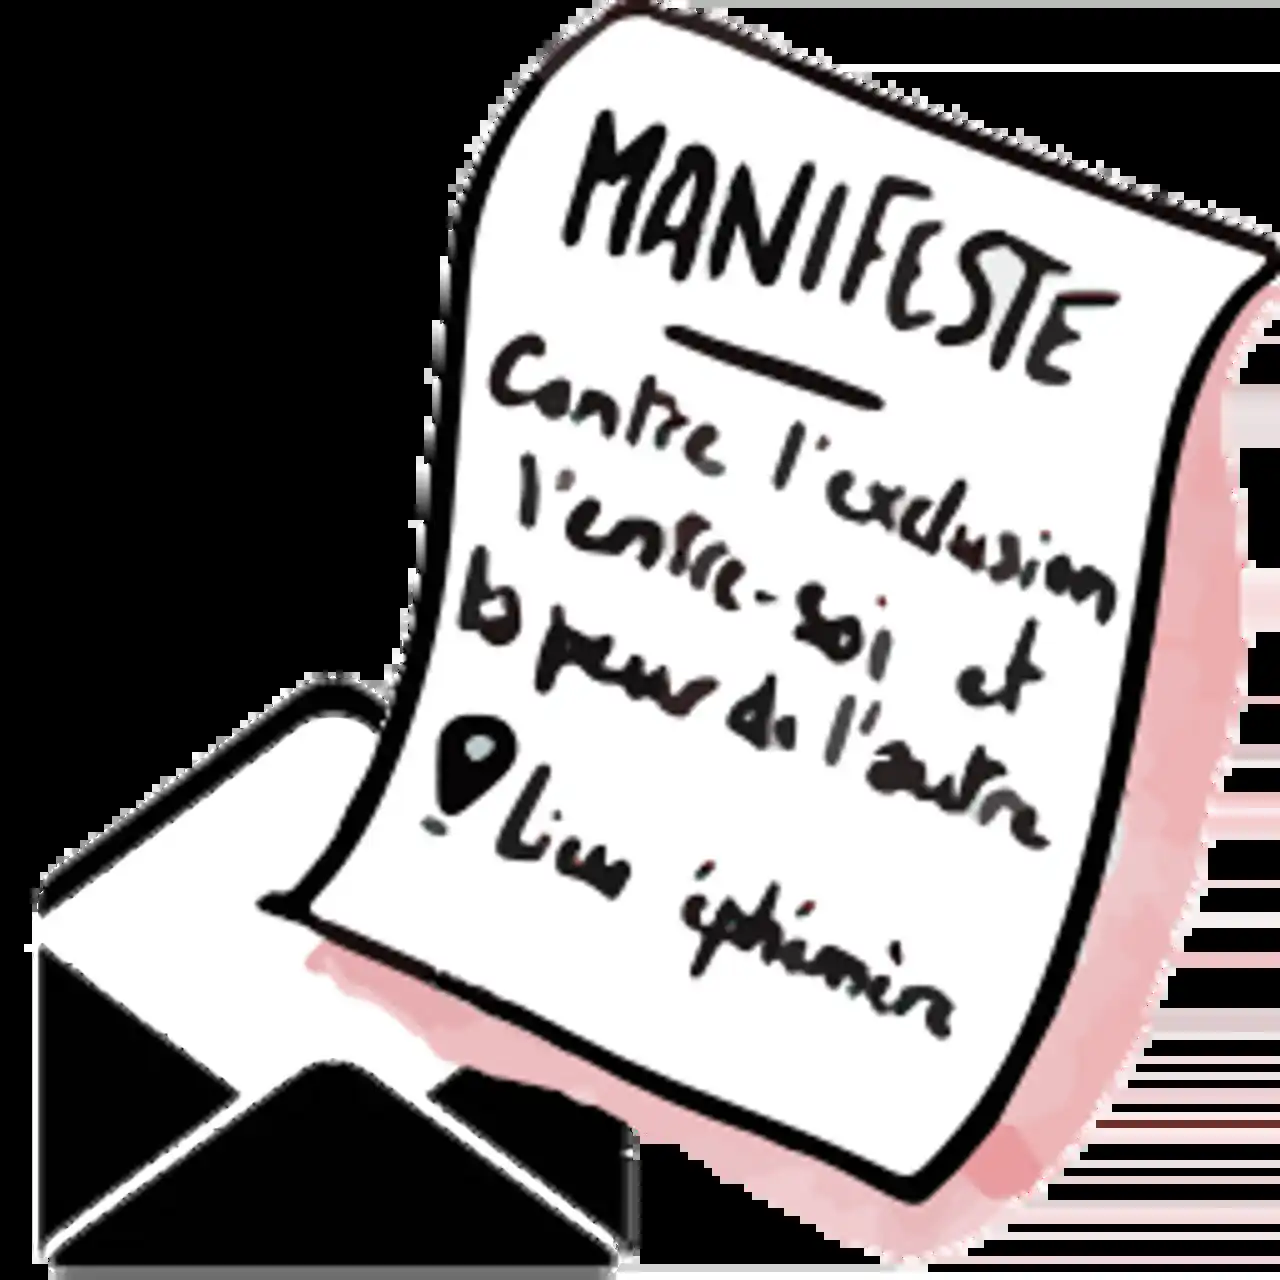 MANIFESTE
Contre l'exclusion
l'entre-soi et
la peur de l'autre
Lieu éphémère